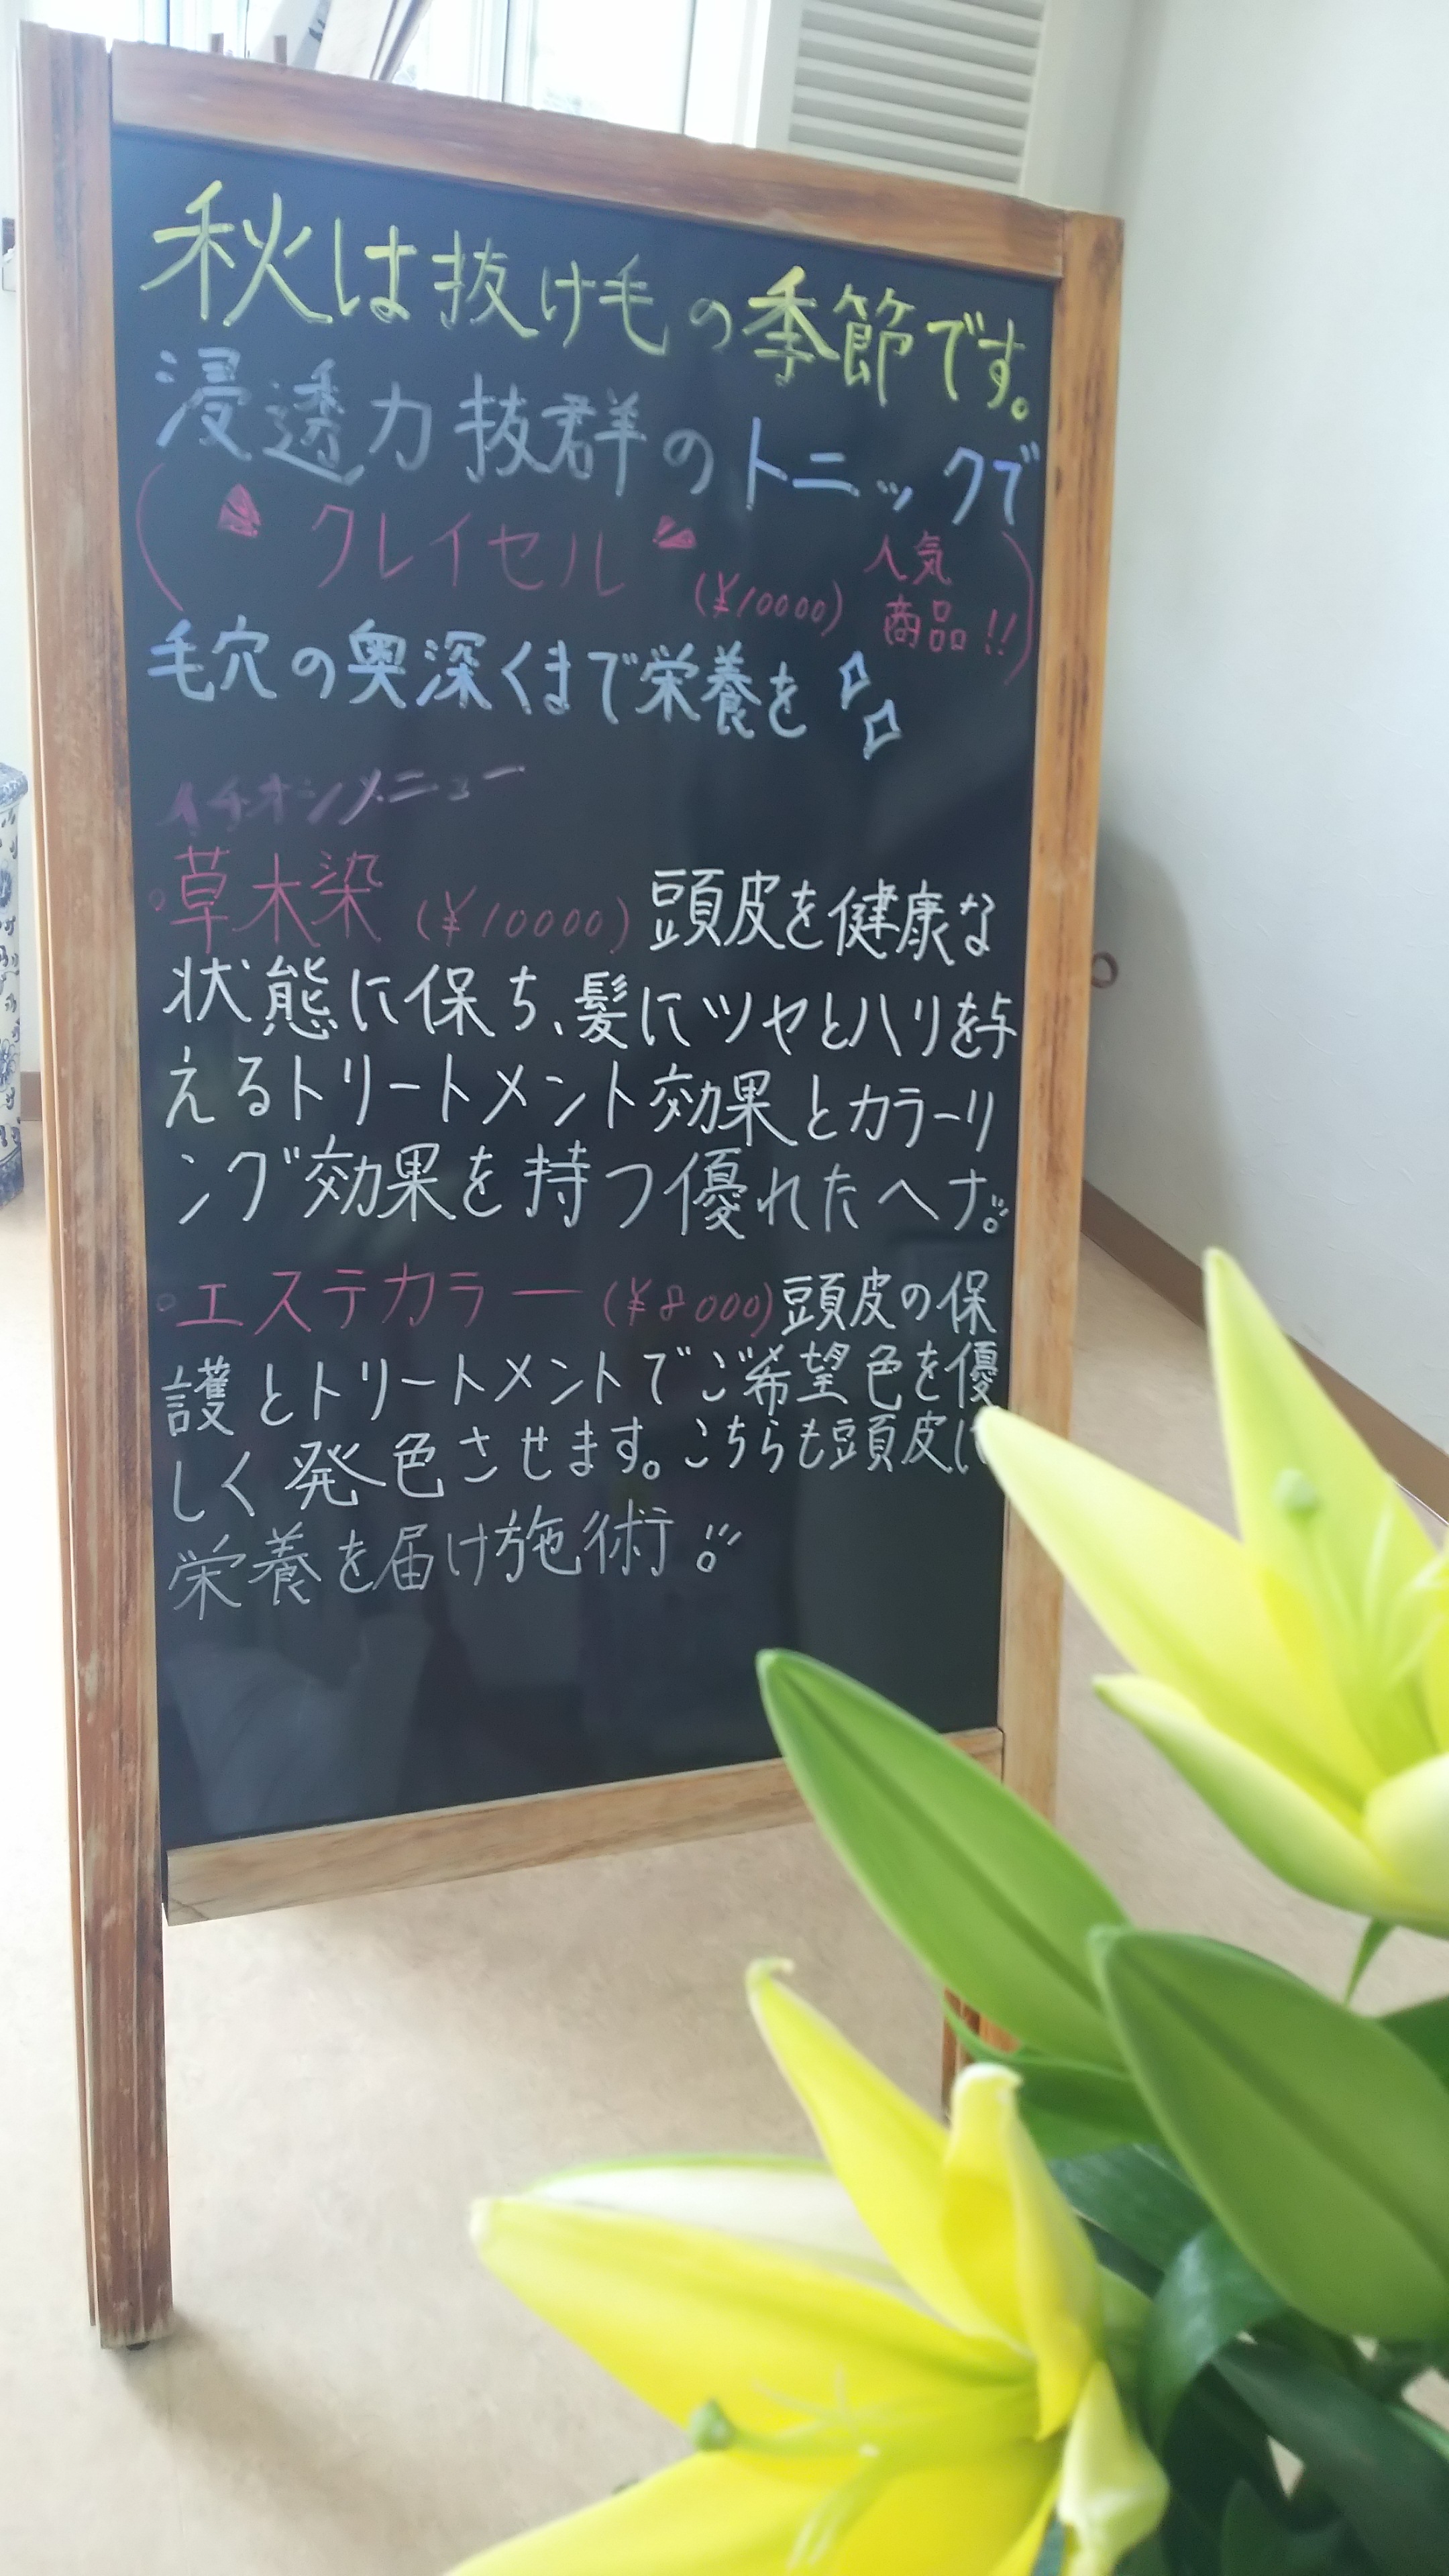 秋は抜け毛の季節です。
浸透力抜群のトニックで
(クレイセル (¥10000) 人気商品!!)
毛穴の奥深くまで栄養を
イチオシメニュー
。草木染 (¥10000) 頭皮を健康な
状態に保ち、髪にツヤとハリを与
えるトリートメント効果とカラーリ
ング効果を持つ優れたヘナ。
。エステカラー (¥8000) 頭皮の保
護とトリートメントでご希望色を優
しく発色させます。こちらも頭皮に
栄養を届け施術。